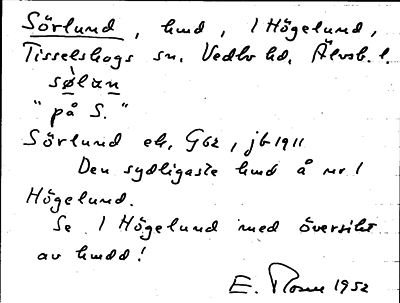 Sörlund, hmd, 1 Högelund,
Tisselskogs sn. Vedbo hd. Älvsb. l.
sø̀lan
"på S."
Sörlund ek. G62, jb 1911
Den sydligaste hmd å nr 1
Högelund.
Se 1 Högelund med översikt
av hmdd!
E. 1952